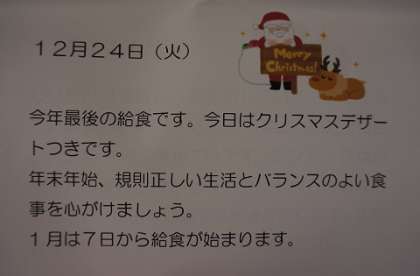 12月24日（火）
Merry
Christmas!
今年最後の給食です。今日はクリスマスデザー
トつきです。
年末年始、規則正しい生活とバランスのよい食
事を心がけましょう。
1月は7日から給食が始まります。